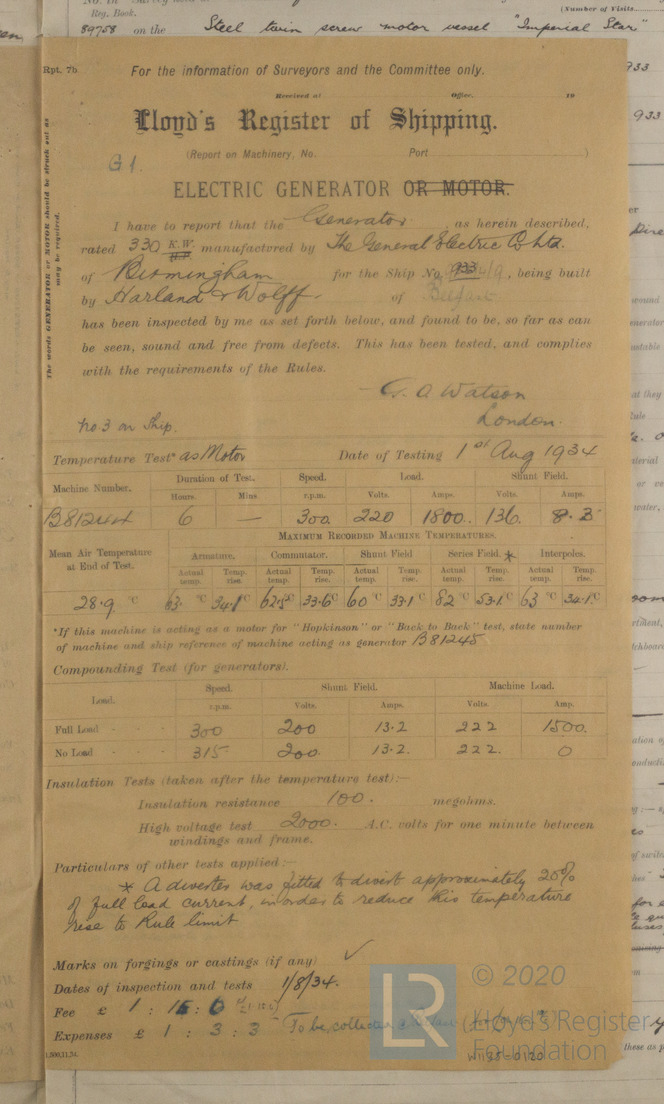 Reg. Book.
(Number of Visits
89758 on the Steel twin screw motor vessel "Imperial Star"
Rpt. 7b
For the information of Surveyors and the Committee only.
Received at Office. 19
Lloyd's Register of Shipping.
(Report on Machinery, No. Port )
G 1.
ELECTRIC GENERATOR OR MOTOR.
The words GENERATOR or MOTOR should be struck out as may be required.
I have to report that the Generator as herein described,
rated 330 K.W. manufactured by The General Electric Co Ltd.
of Birmingham for the Ship No. 933 , being built
by Harland & Wolff. of Belfast
has been inspected by me as set forth below, and found to be, so far as can
be seen, sound and free from defects. This has been tested, and complies
with the requirements of the Rules.
G. A Watson
London.
No.3 on Ship.
Temperature Test* as Motor Date of Testing 1st Aug 1934
Machine Number. Duration of Test. Speed. Load. Shunt Field.
Hours. Mins r.p.m. Volts. Amps. Volts. Amps.
B81244 6 — 300 220 1800. 136.
Maximum Recorded Machine Temperatures.
Mean Air Temperature at End of Test. Armature, Commutator. Shunt Field Series Field. * Interpoles.
Actual temp. Temp. rise. Actual temp. Temp. rise. Actual temp. Temp. rise. Actual temp. Temp. rise. Actual temp. Temp. rise.
28.9 °C 63. °C 34.1 °C 62.5 °C 33.6 °C 60 °C 33.1 °C 82 °C 53.1 °C 63 °C 34.1 °C
*If this machine is acting as a motor for "Hopkinson" or "Back to Back" test, state number
of machine and ship reference of machine acting as generator B81245
Compounding Test (for generators).
Load. Speed. Shunt Field. Machine Load.
r.p.m. Volts. Amps. Volts. Amp.
Full Load - - 300 200 13.2 222 1500.
No Load - - 315 200. 13.2. 222. 0
Insulation Tests (taken after the temperature test):—
Insulation resistance 100. megohms.
High voltage test 2000. A.C. volts for one minute between
windings and frame.
Particulars of other tests applied:—
* A diverter was fitted to divert approximately 20%
of full load current, in order to reduce this temperature
rise to Rule limit
Marks on forgings or castings (if any) ✓
Dates of inspection and tests 1/8/34.
Fee £ 1 : 15 : 0
Expenses £ 1 : 3 : 3 To be collected
1,500,11,34.
LR
© 2020
Lloyd's Register
Foundation
W1195-0120